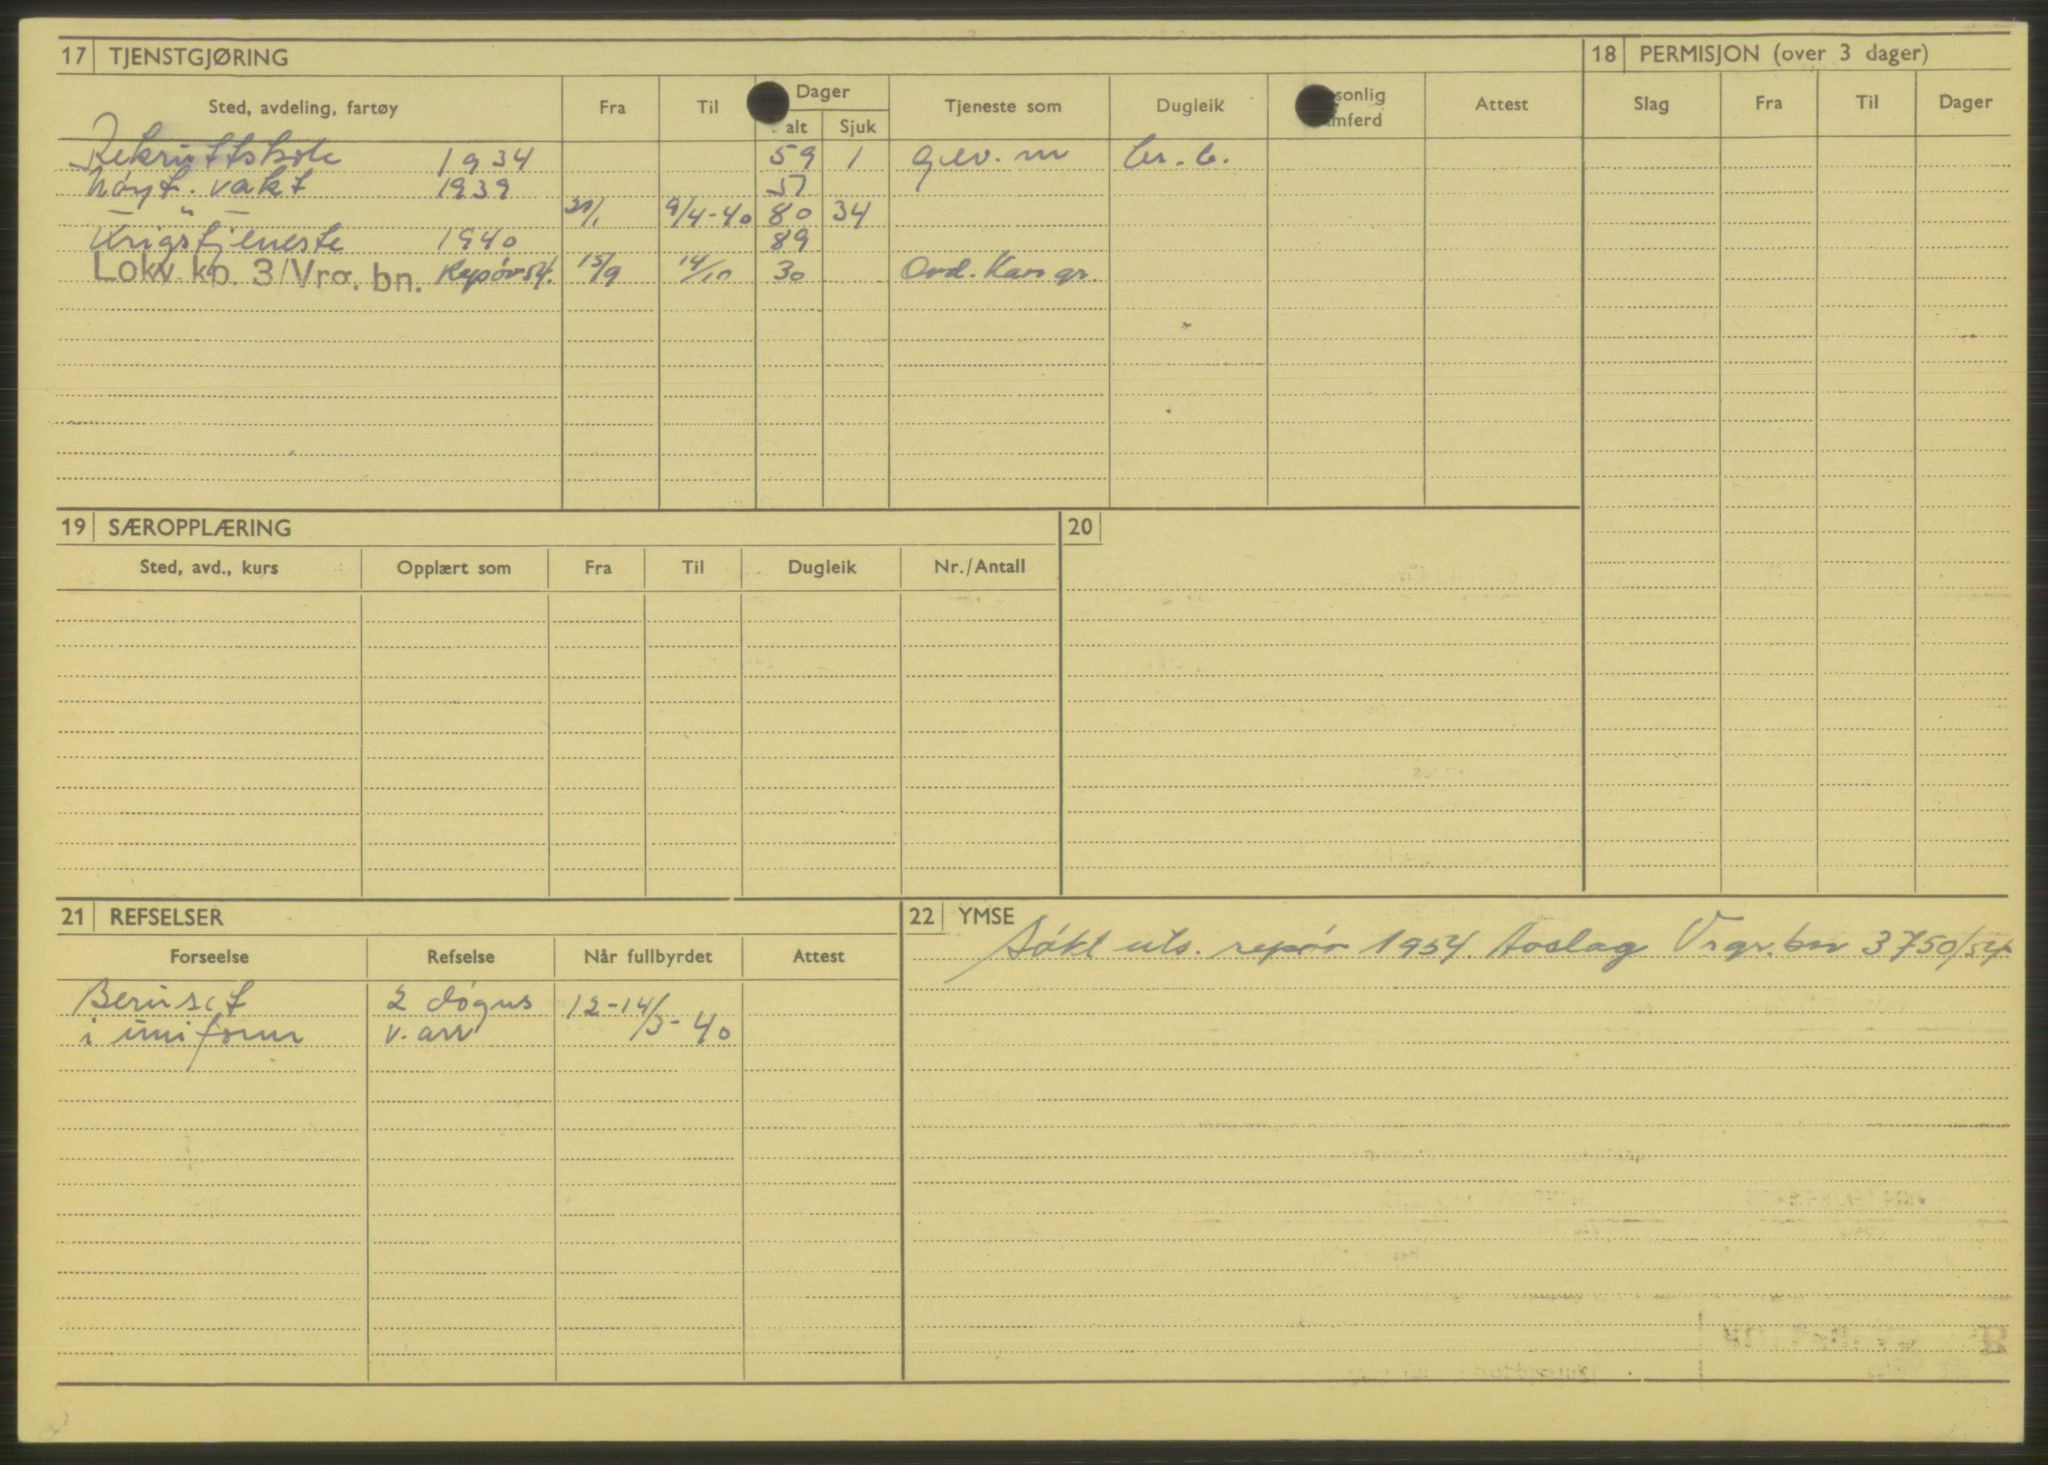 17 TJENSTGJØRING
18 PERMISJON (over 3 dager)
Sted, avdeling, fartøy Fra Til Dager Tjeneste som Dugleik sonlig Attest Slag Fra Til Dager
alt Sjuk mferd
Rekruttskole 1934 59 1 gev. m br. b.
nøyt. vakt 1939 57
" 9/4-40 80 34
Krigstjeneste 1940 89
Lokv. kp. 3/Vrg. bn. Repøv 54. 15/9 14/10 30 Ord. Kan gr.
19 SÆROPPLÆRING
20
Sted, avd., kurs Opplært som Fra Til Dugleik Nr./Antall
21 REFSELSER
22 YMSE
Forseelse Refselse Når fullbyrdet Attest
Søkt uts. repøv 1954. Avslag Vrgr. bn 3750/54
Beruset 2 døgns 12-14/3-40
i uniform v. arr